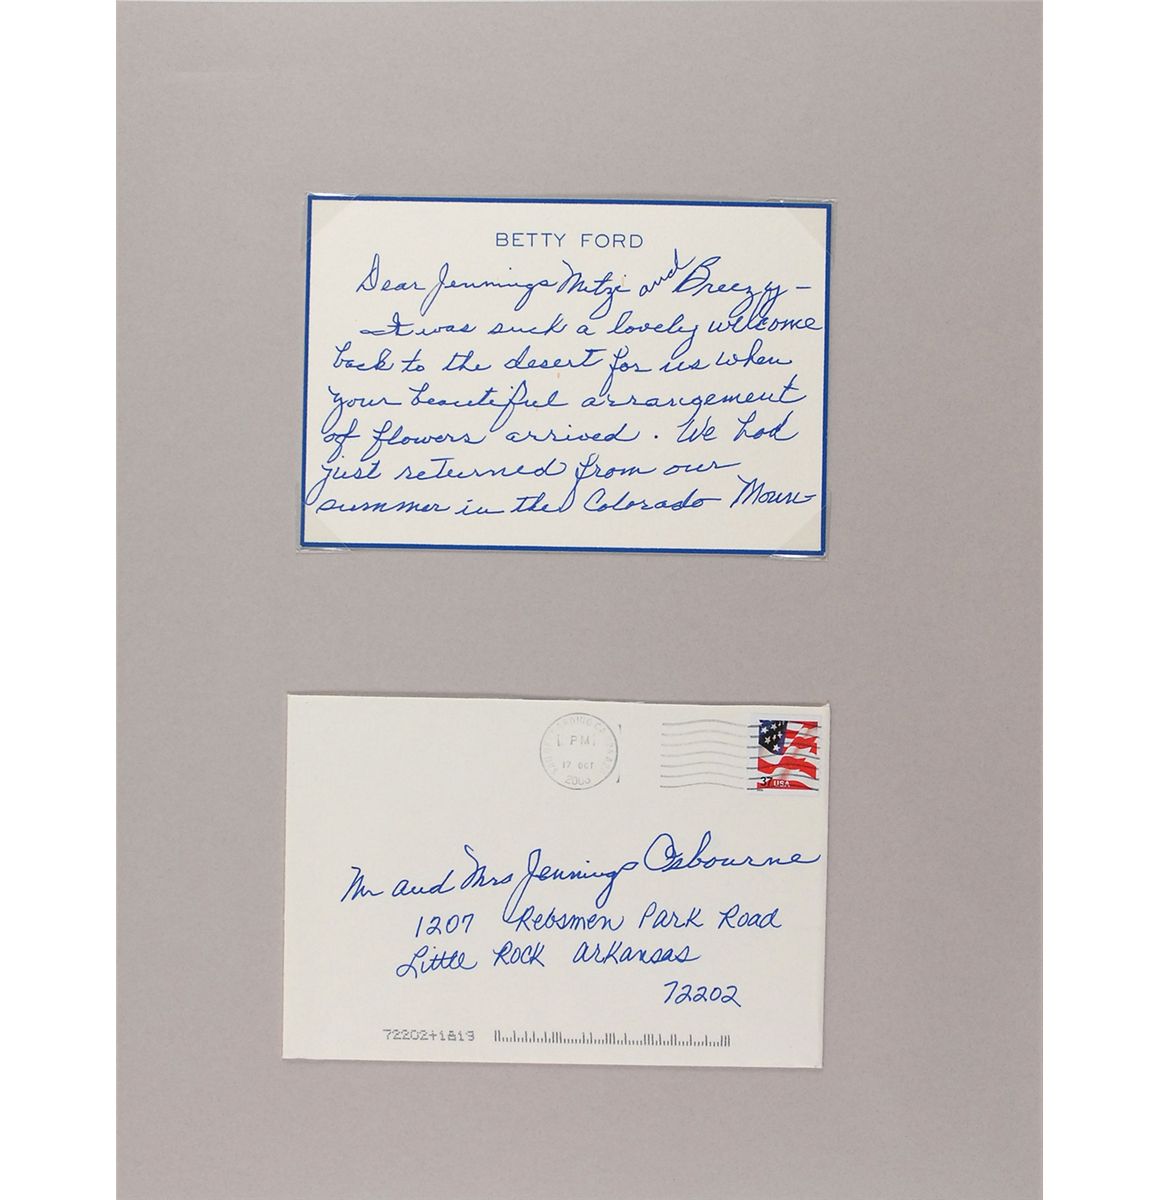 BETTY FORD
Dear Jennings Mitzi and Breezy —
It was such a lovely welcome
back to the desert for us when
your beautiful arrangement
of flowers arrived. We had
just returned from our
summer in the Colorado Moun-
PM
17 OCT
37 USA
Mr and Mrs Jennings Osbourne
1207 Rebsmen Park Road
Little Rock Arkansas
72202
72202+1819